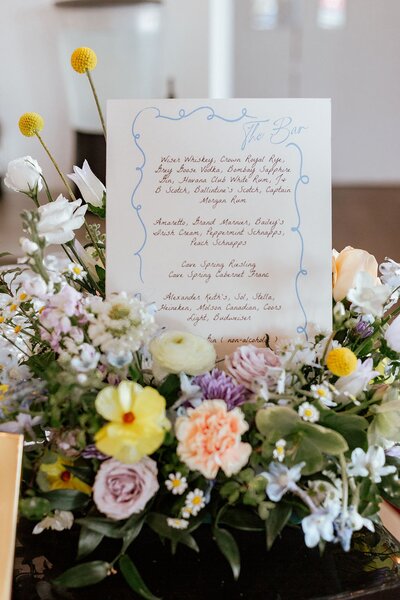 The Bar
Wiser Whiskey, Crown Royal Rye,
Grey Goose Vodka, Bombay Sapphire
Gin, Havana Club White Rum, J+
B Scotch, Ballintine's Scotch, Captain
Morgan Rum
Amaretto, Grand Marnier, Bailey's
Irish Cream, Peppermint Schnapps,
Peach Schnapps
Cave Spring Riesling
Cave Spring Cabernet Franc
Alexander Keith's, Sol, Stella,
Heineken, Molson Canadian, Coors
Light, Budweiser
( non-alcohol